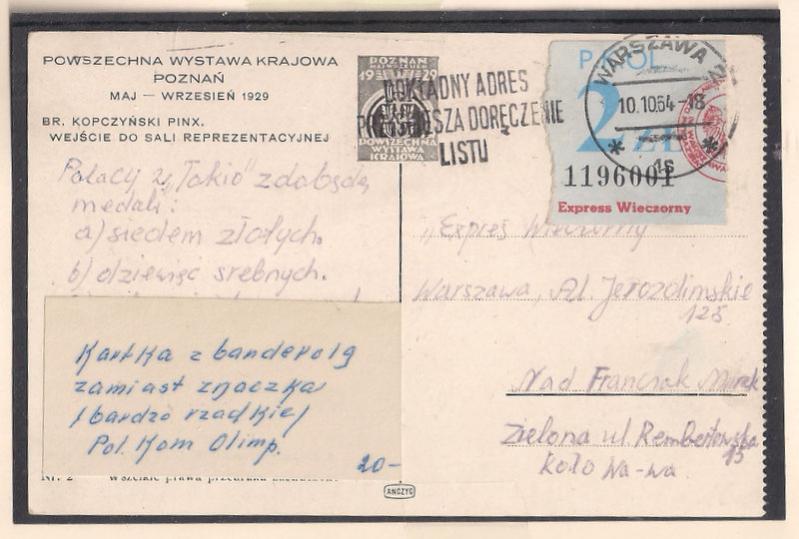 POWSZECHNA WYSTAWA KRAJOWA
POZNAŃ
MAJ — WRZESIEŃ 1929
BR. KOPCZYŃSKI PINX.
WEJŚCIE DO SALI REPREZENTACYJNEJ
POZNAŃ
19 29
POWSZECHNA
WYSTAWA
KRAJOWA
DOKŁADNY ADRES
DORĘCZENIE
LISTU
WARSZAWA 2
10.10.64-18
1s
2 ZŁ
1196001
Express Wieczorny
Polacy w „Tokio” zdobędą
medali:
a) siedem złotych.
b) dziewięć srebnych.
Kartka z banderolą
zamiast znaczka
/bardzo rzadkie/
Pol. Kom Olimp.
20-
„Expres Wieczorny
Warszawa, Al. Jerozolimskie
125
Nad Franczak Marek
Zielona ul. Rembertowska
15
koło Wa-wa.
Nr. 2
ANCZYC